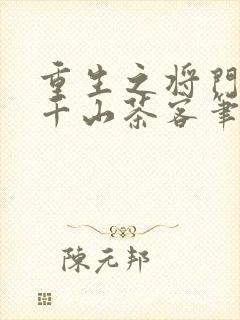 重生之将門
千山茶客筆
陳元邦